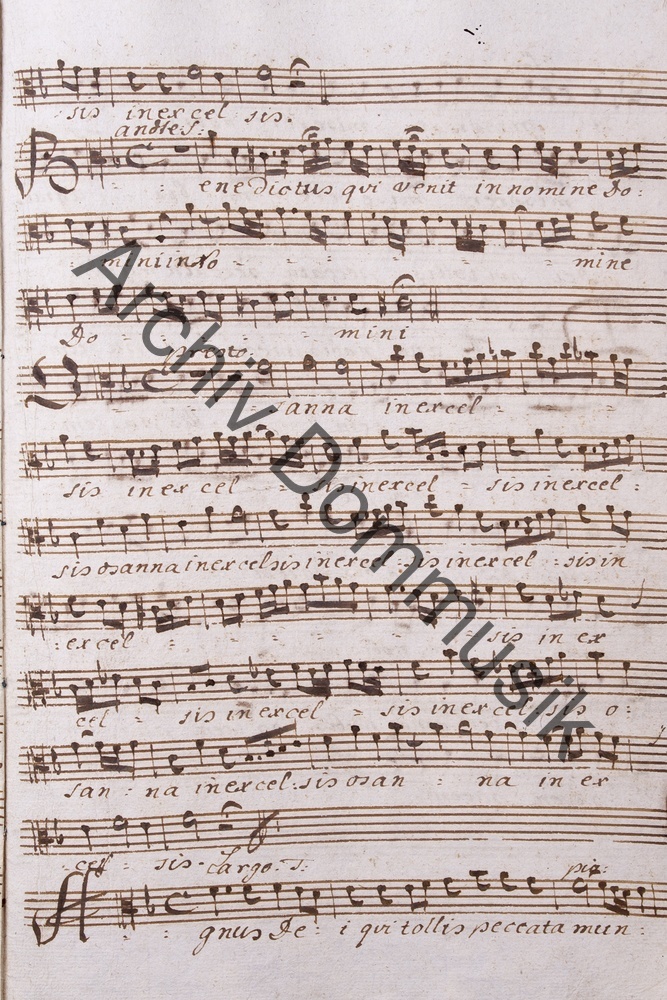 sis in excel sis.
andtes:
Benedictus qui venit in nomine do:
mini in no - - - mine
Do - - mini
presto
sanna in excel -
sis in excel - sis in excel - sis in excel:
sis osanna in excelsis in excel - sis in excel - sis in
excel - - - sis in ex
cel - sis in excel - sis in excel: sis o:
san - na in excel: sis osan - na in ex
cel - sis.
Largo. s:
pia:
Agnus De: i qui tollis peccata mun -
Archiv Dommusik